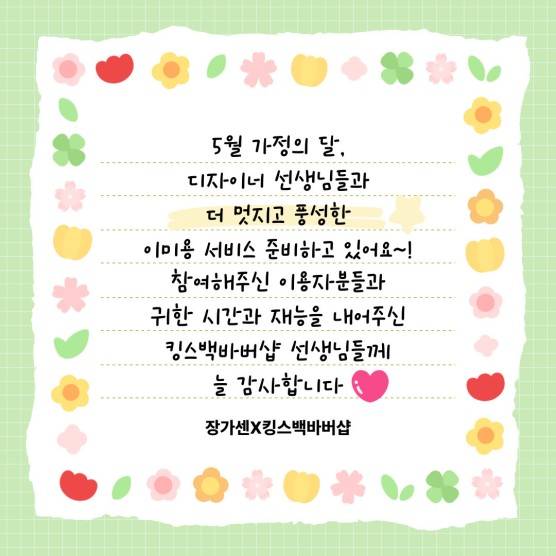 5월 가정의 달,
디자이너 선생님들과
더 멋지고 풍성한
이미용 서비스 준비하고 있어요~!
참여해주신 이용자분들과
귀한 시간과 재능을 내어주신
킹스백바버샵 선생님들께
늘 감사합니다
장가센X킹스백바버샵